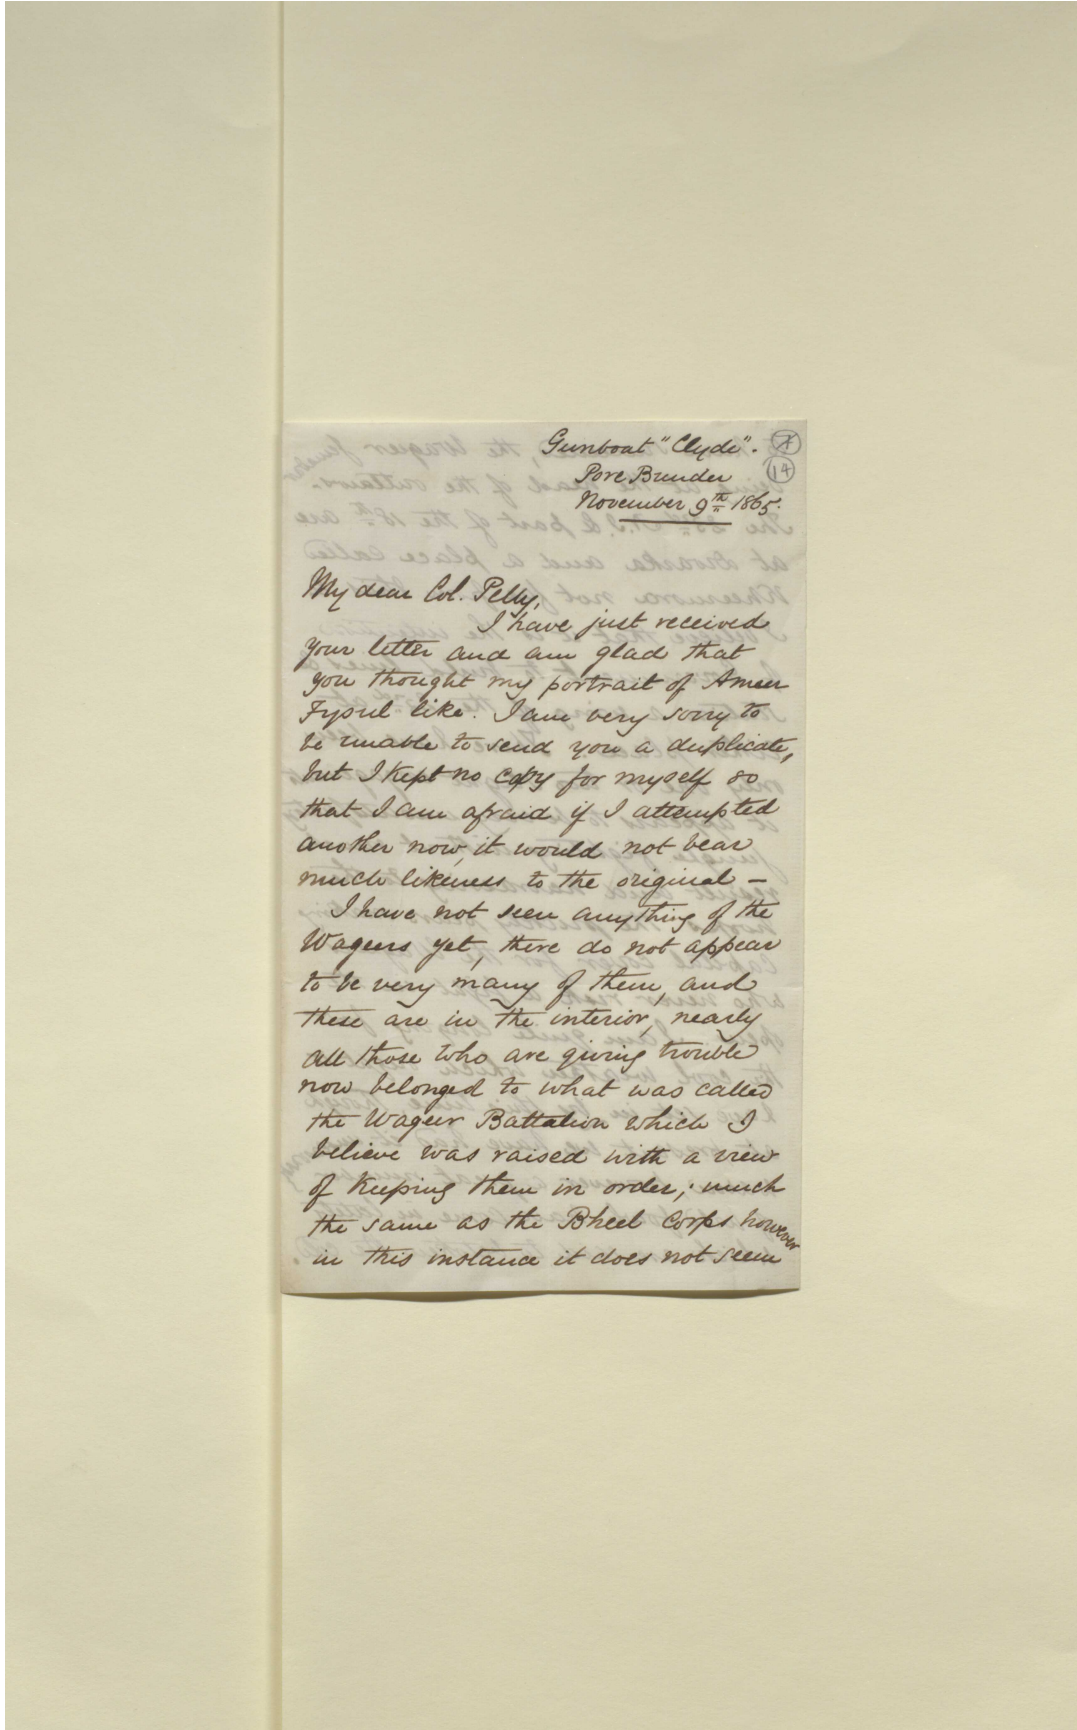 Gunboat "Clyde".
14
Pore Bunder
November 9th 1865.
My dear Col. Pelly,
I have just received
your letter and am glad that
you thought my portrait of Ameer
Fysul like. I am very sorry to
be unable to send you a duplicate,
but I kept no copy for myself so
that I am afraid if I attempted
another now, it would not bear
much likeness to the original —
I have not seen anything of the
Wageers yet, there do not appear
to be very many of them, and
these are in the interior, nearly
all those who are giving trouble
now belonged to what was called
the Wageer Battalion which I
believe was raised with a view
of keeping them in order; much
the same as the Bheel Corps however
in this instance it does not seem